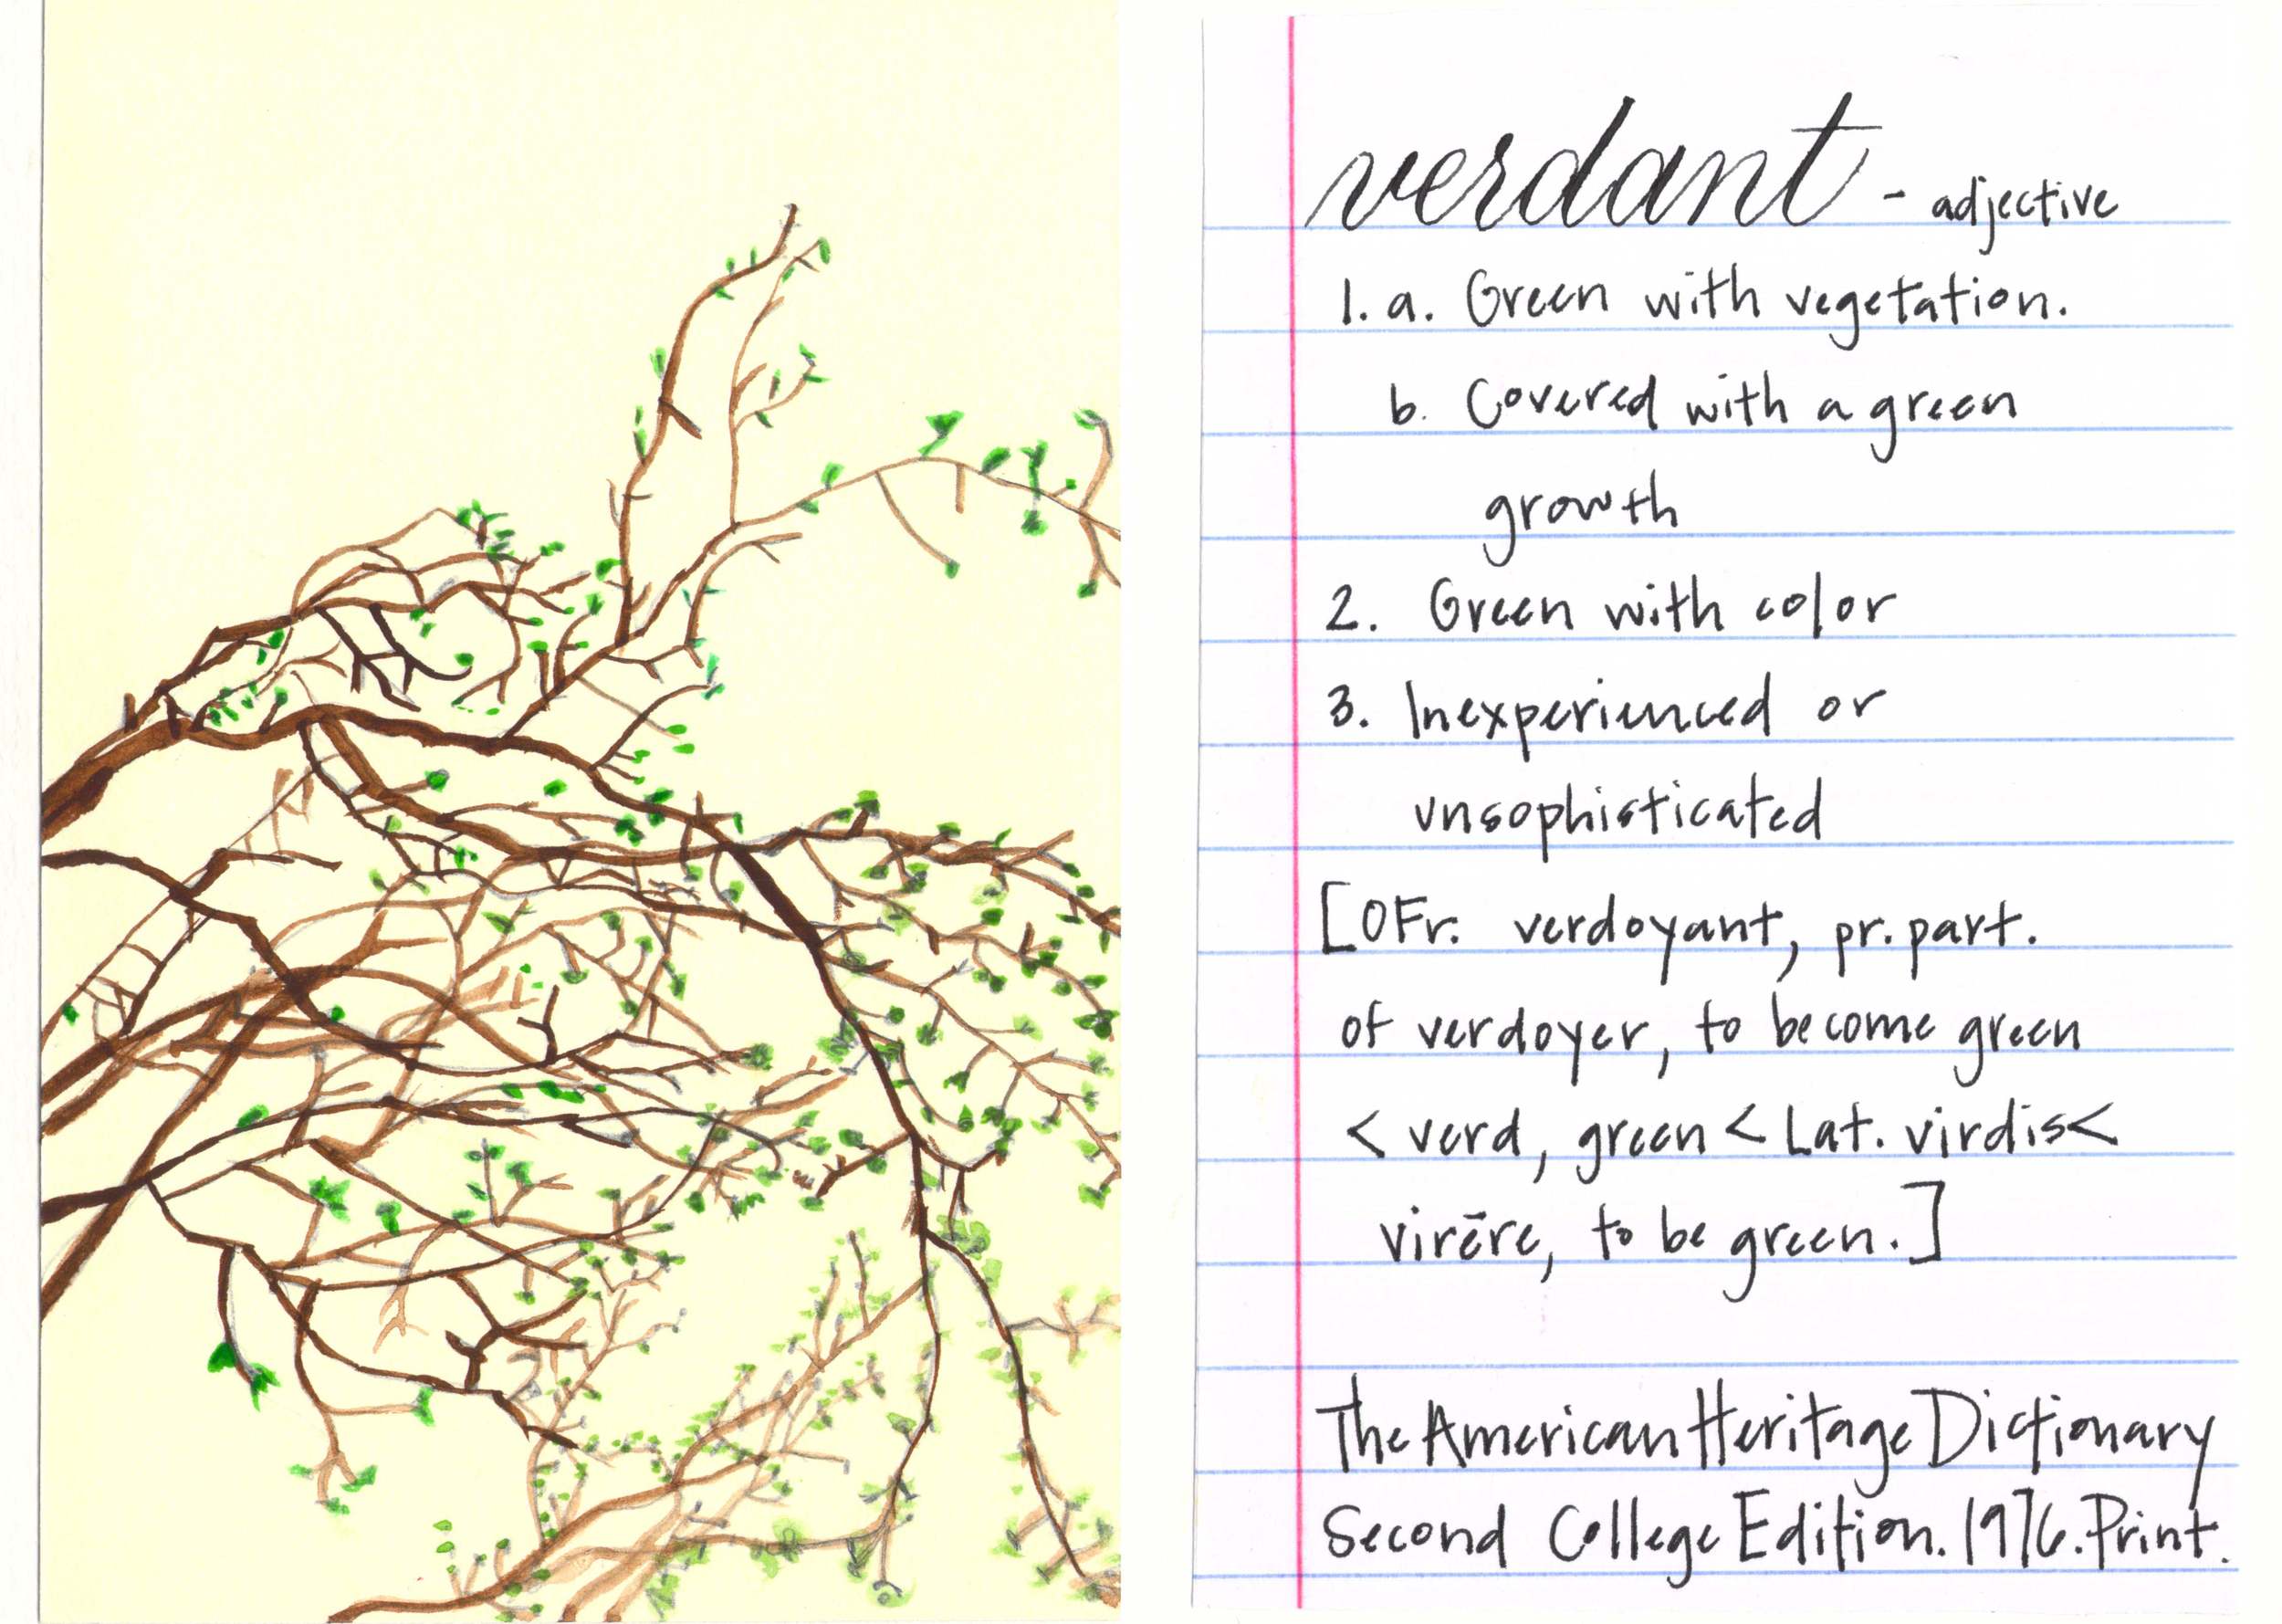 verdant - adjective
1. a. Green with vegetation.
b. Covered with a green
growth
2. Green with color
3. Inexperienced or
unsophisticated
[OFr. verdoyant, pr. part.
of verdoyer, to become green
< verd, green < Lat. virdis <
virēre, to be green.]
The American Heritage Dictionary
Second College Edition. 1976. Print.